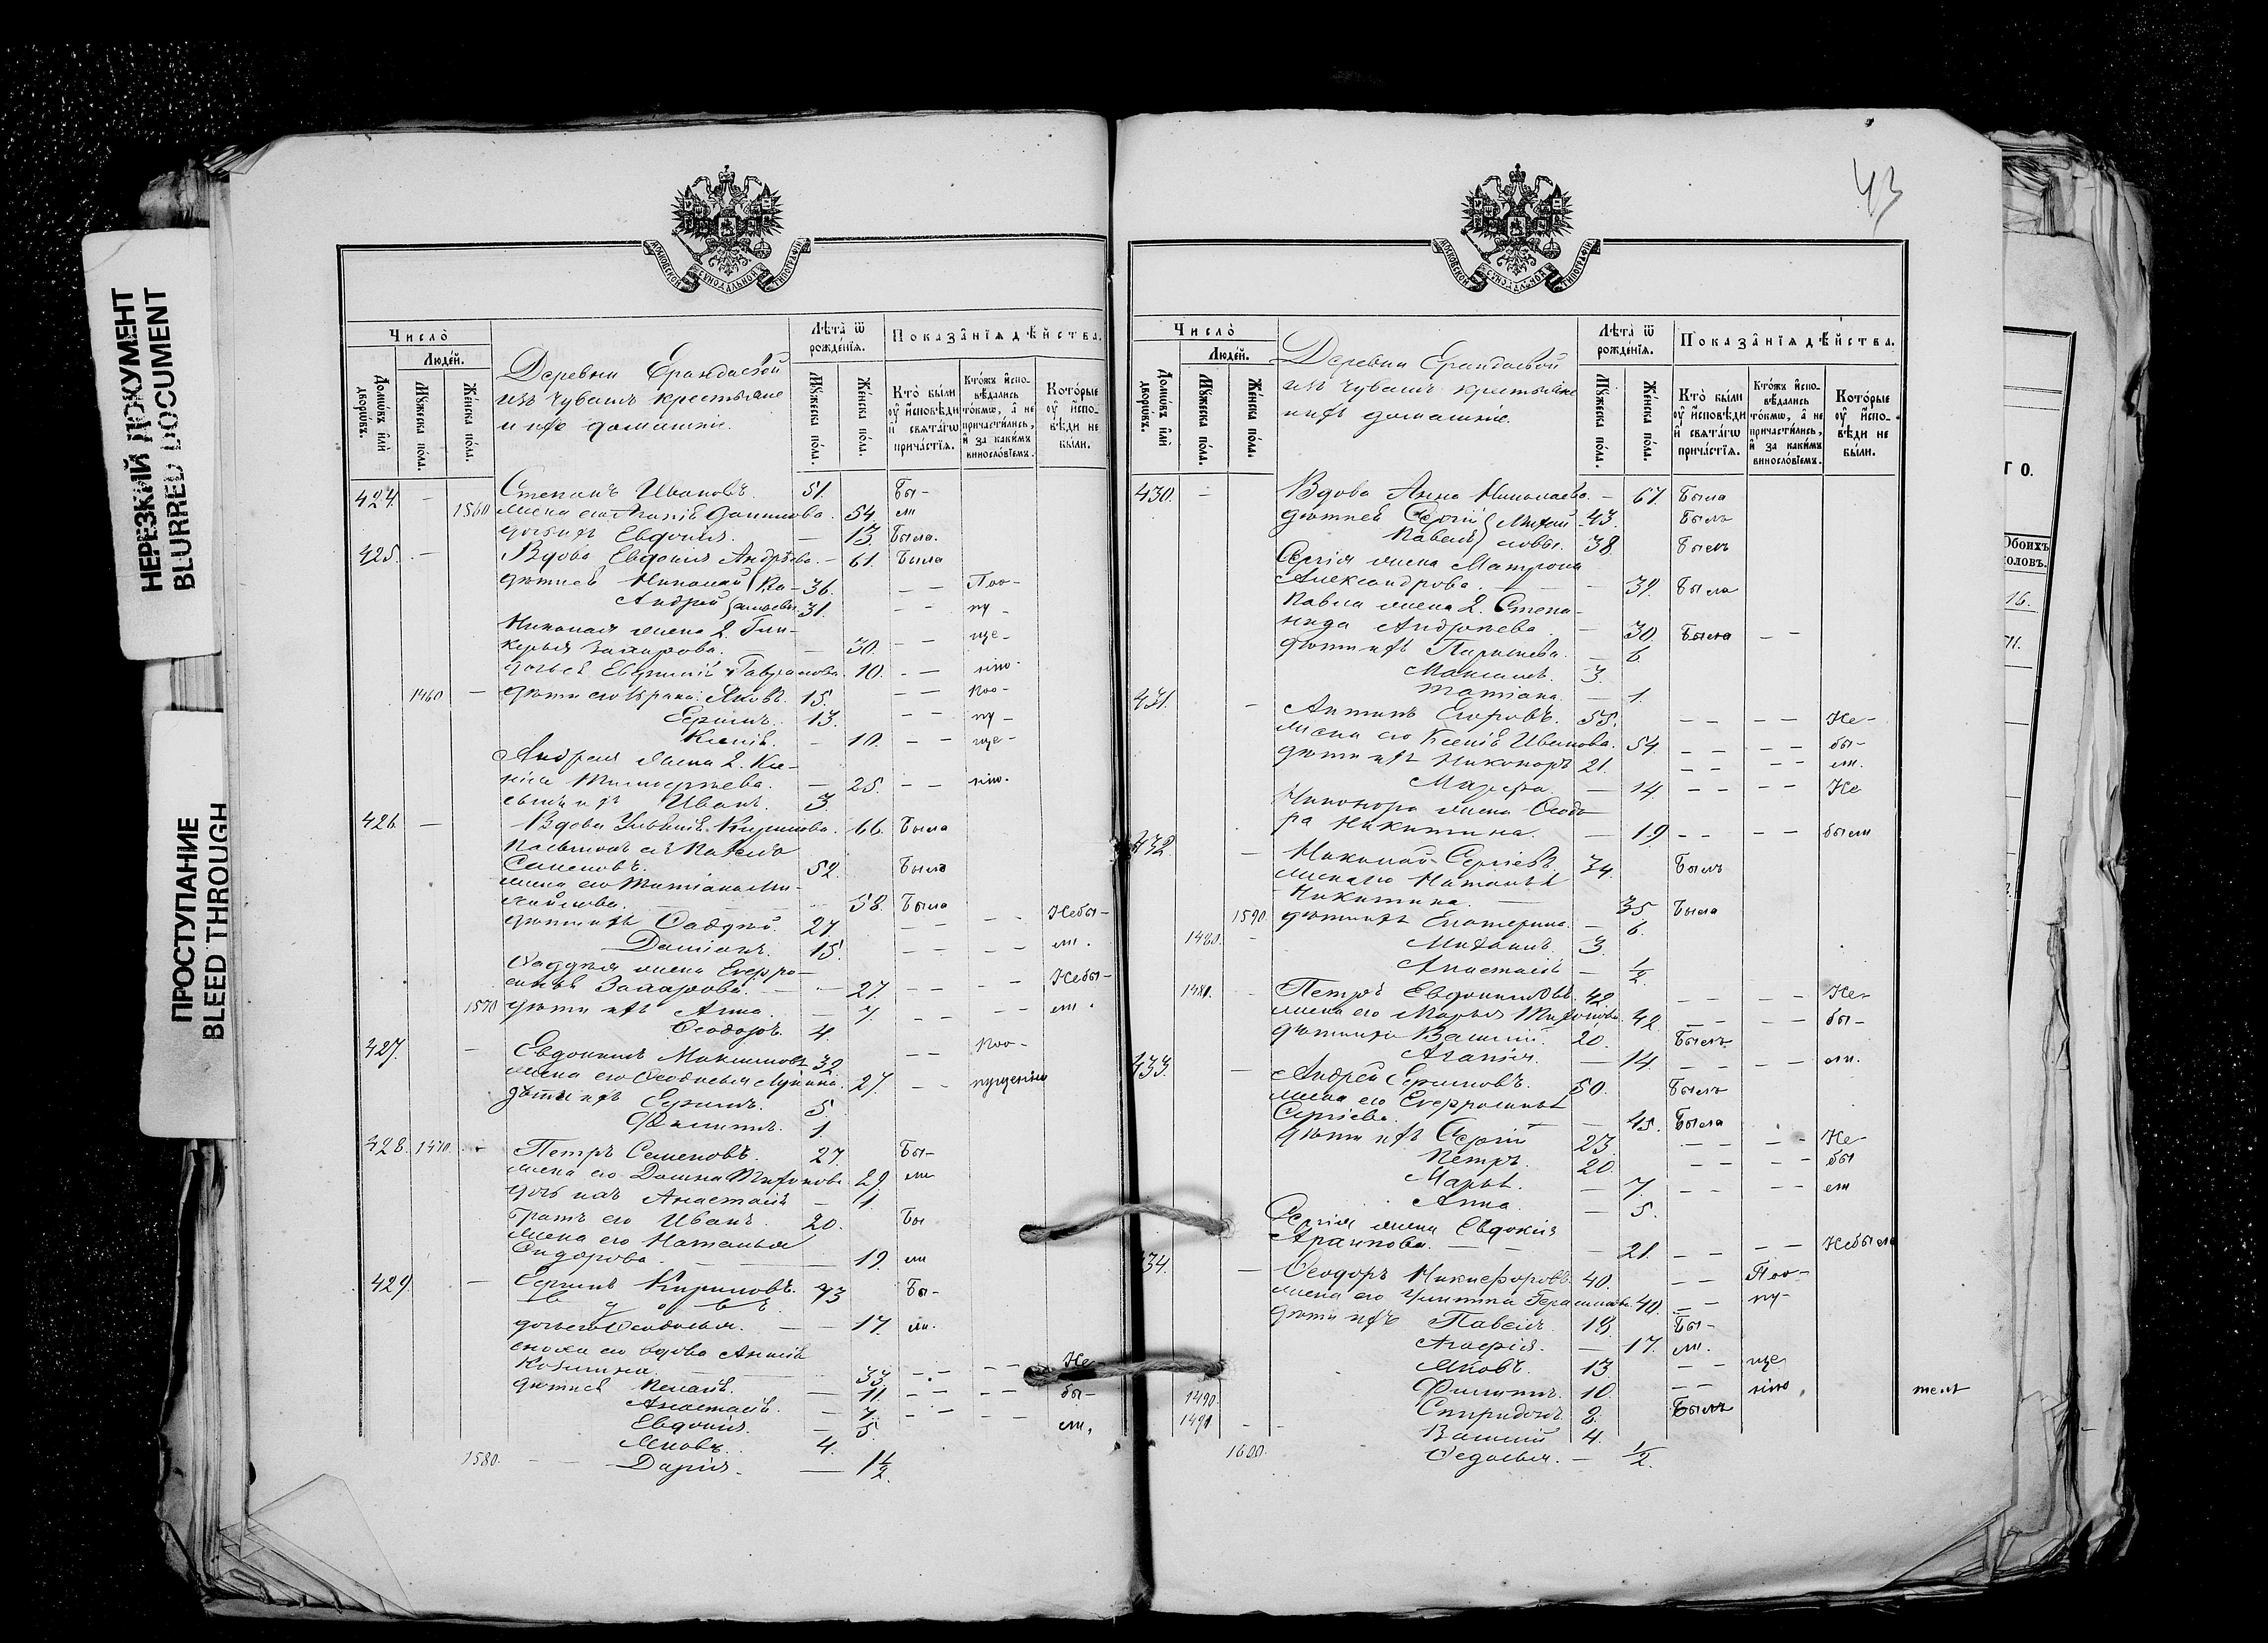 НЕРЕЗКИЙ ДОКУМЕНТ
BLURRED DOCUMENT
ПРОСТУПАНИЕ
BLEED THROUGH
МОСКОВСКОЙ СѴНОДАЛЬНОЙ ТИПОГРАФІИ
Число̀
Людей.
Домовъ или дворовъ.
Мужеска пола.
Женска пола.
Деревни Ерандаевой
изъ чувашъ крестьяне
и ихъ домашніе.
Лѣта ѿ рожденія.
Мужеска пола.
Женска пола.
Показанія дѣйства.
Кто были оу исповѣди и святагѡ причастія.
Ктожъ исповѣдались токмо, а не причастились, и за какимъ винословіемъ.
Которые оу исповѣди не были.
424. — Степанъ Ивановъ. 51. Бы-
1560 жена его Данилова. 54 ли
дочь ихъ Евдокия. — 13 Была.
425. — Вдова Евдокия Андрѣева. — 61. Была
дѣти ея Николай 36. — — Поо-
Андрей 31. — — пу-
Николая жена 2. Гли-
керья Захарова. — 30. — — ще-
дочь ея 10. — — нію.
1460 — Яковъ. 15. — — Поо-
Герасимъ. 13. — — пу-
Ксенія. — 10. — — ще-
Андрея жена 2. Ксе-
нія Тимофеева. — 25. — — нію.
сынъ ихъ Иванъ. 3
426. — Вдова Кирилова. 66. Была
Павелъ
Семеновъ. 52. Былъ
жена его Татіана Ми-
хайлова. 58. Была
дѣти ихъ Фаддей. 27. — — Небы-
Даміанъ. 15. — — ли.
Фаддея жена Евфро-
синья Захарова. — 27. — — Небы-
1570 дѣти ихъ Анна. — 7 — — ли.
Ѳеодоръ. 4.
427. — Евдокимъ Максимовъ 32 — — Поо-
жена его Ѳеодосья Лукина. 27. — — пущенію
дѣти ихъ Герасимъ. 5.
Филиппъ. 1.
428. 1470. Петръ Семеновъ. 27. Бы-
жена его Домна Тихонова 29. ли
дочь ихъ Анастасія — 1.
братъ его Иванъ. 20. Бы
жена его Наталья
Сидорова. — 19. ли
429. — Кириловъ. 73 Бы-
вдовъ
дочь его Ѳеодосья. — 17. ли.
сноха его вдова
33 — — Не
дѣти ея Пелагія. — 11. — — бы-
Анастасія. — 7. — —
Евдокия. — 5. ли.
Яковъ. 4.
1580. — Дарія. — 1½.
43
МОСКОВСКОЙ СѴНОДАЛЬНОЙ ТИПОГРАФІИ
Число̀
Людей.
Домовъ или дворовъ.
Мужеска пола.
Женска пола.
Деревни Ерандаевой
изъ чувашъ крестьяне
и ихъ домашніе.
Лѣта ѿ рожденія.
Мужеска пола.
Женска пола.
Показанія дѣйства.
Кто были оу исповѣди и святагѡ причастія.
Ктожъ исповѣдались токмо, а не причастились, и за какимъ винословіемъ.
Которые оу исповѣди не были.
430. — Вдова Анна Николаева. — 67. Была
дѣти ея Сергій Михай- 43. Былъ
Павелъ ловы. 38. Былъ
Сергія жена Матрона
Александрова. — 39. Была
Павла жена 2. Степа-
нида Андреева. — 30. Была — —
дѣти ихъ — 6
Максимъ. 3.
Татіана. — 1.
431. — Антипъ Егоровъ. 55. — — — — Не-
жена его Ксенія Иванова. 54. — — — — бы-
дѣти ихъ Никоноръ 21. — — — — ли.
Марфа. — 14. — — — — Не
Никонора жена Ѳеодо-
ра Никитина. — 19 — — — — были
432. — Николай Сергіевъ 34. Былъ
жена его Наталья
Никитина. — 35 Была
1590. дѣти ихъ Екатерина. — 6.
1480. — Михаилъ. 3.
Анастасія — ½.
1481. — Петръ Евдокимовъ. 42. — — — — Не-
жена его Марья 42. — — — — бы-
дѣти ихъ Василій. 20. Былъ.
Агапія. — 14. — — — — ли.
433. — Андрей Герасимовъ. 50. Былъ
жена его Евфросинья
Сергіева. — 45. Была
дѣти ихъ Сергій 23. — — — — Не-
Петръ. 20. — — — — бы
Марья. — 7. — — — — ли
Анна. — 5.
Сергія жена Евдокія
— 21. — — — — Небыла
434. — Ѳеодоръ Никифоровъ. 40. — — Поо-
жена его Герасимова. 40. — — пу-
дѣти ихъ Павелъ 19. Бы-
— 17. ли.
Яковъ. 13 — — ще
1490. Филиппъ. 10. — — нію.
1491 — Спиридонъ. 8. Былъ
Василій 4.
1600. Ѳедосья. — ½.
ГО.
Обоихъ
половъ.
16.
71.